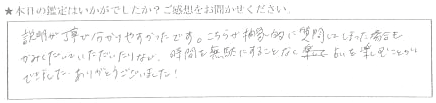 ★本日の鑑定はいかがでしたか？ご感想をお聞かせください。
説明が丁寧で分かりやすかったです。こちらが抽象的に質問してしまった場合も
かみくだいていただいたりなど、時間を無駄にすることなく占いを楽しむことが
できました。ありがとうございました！